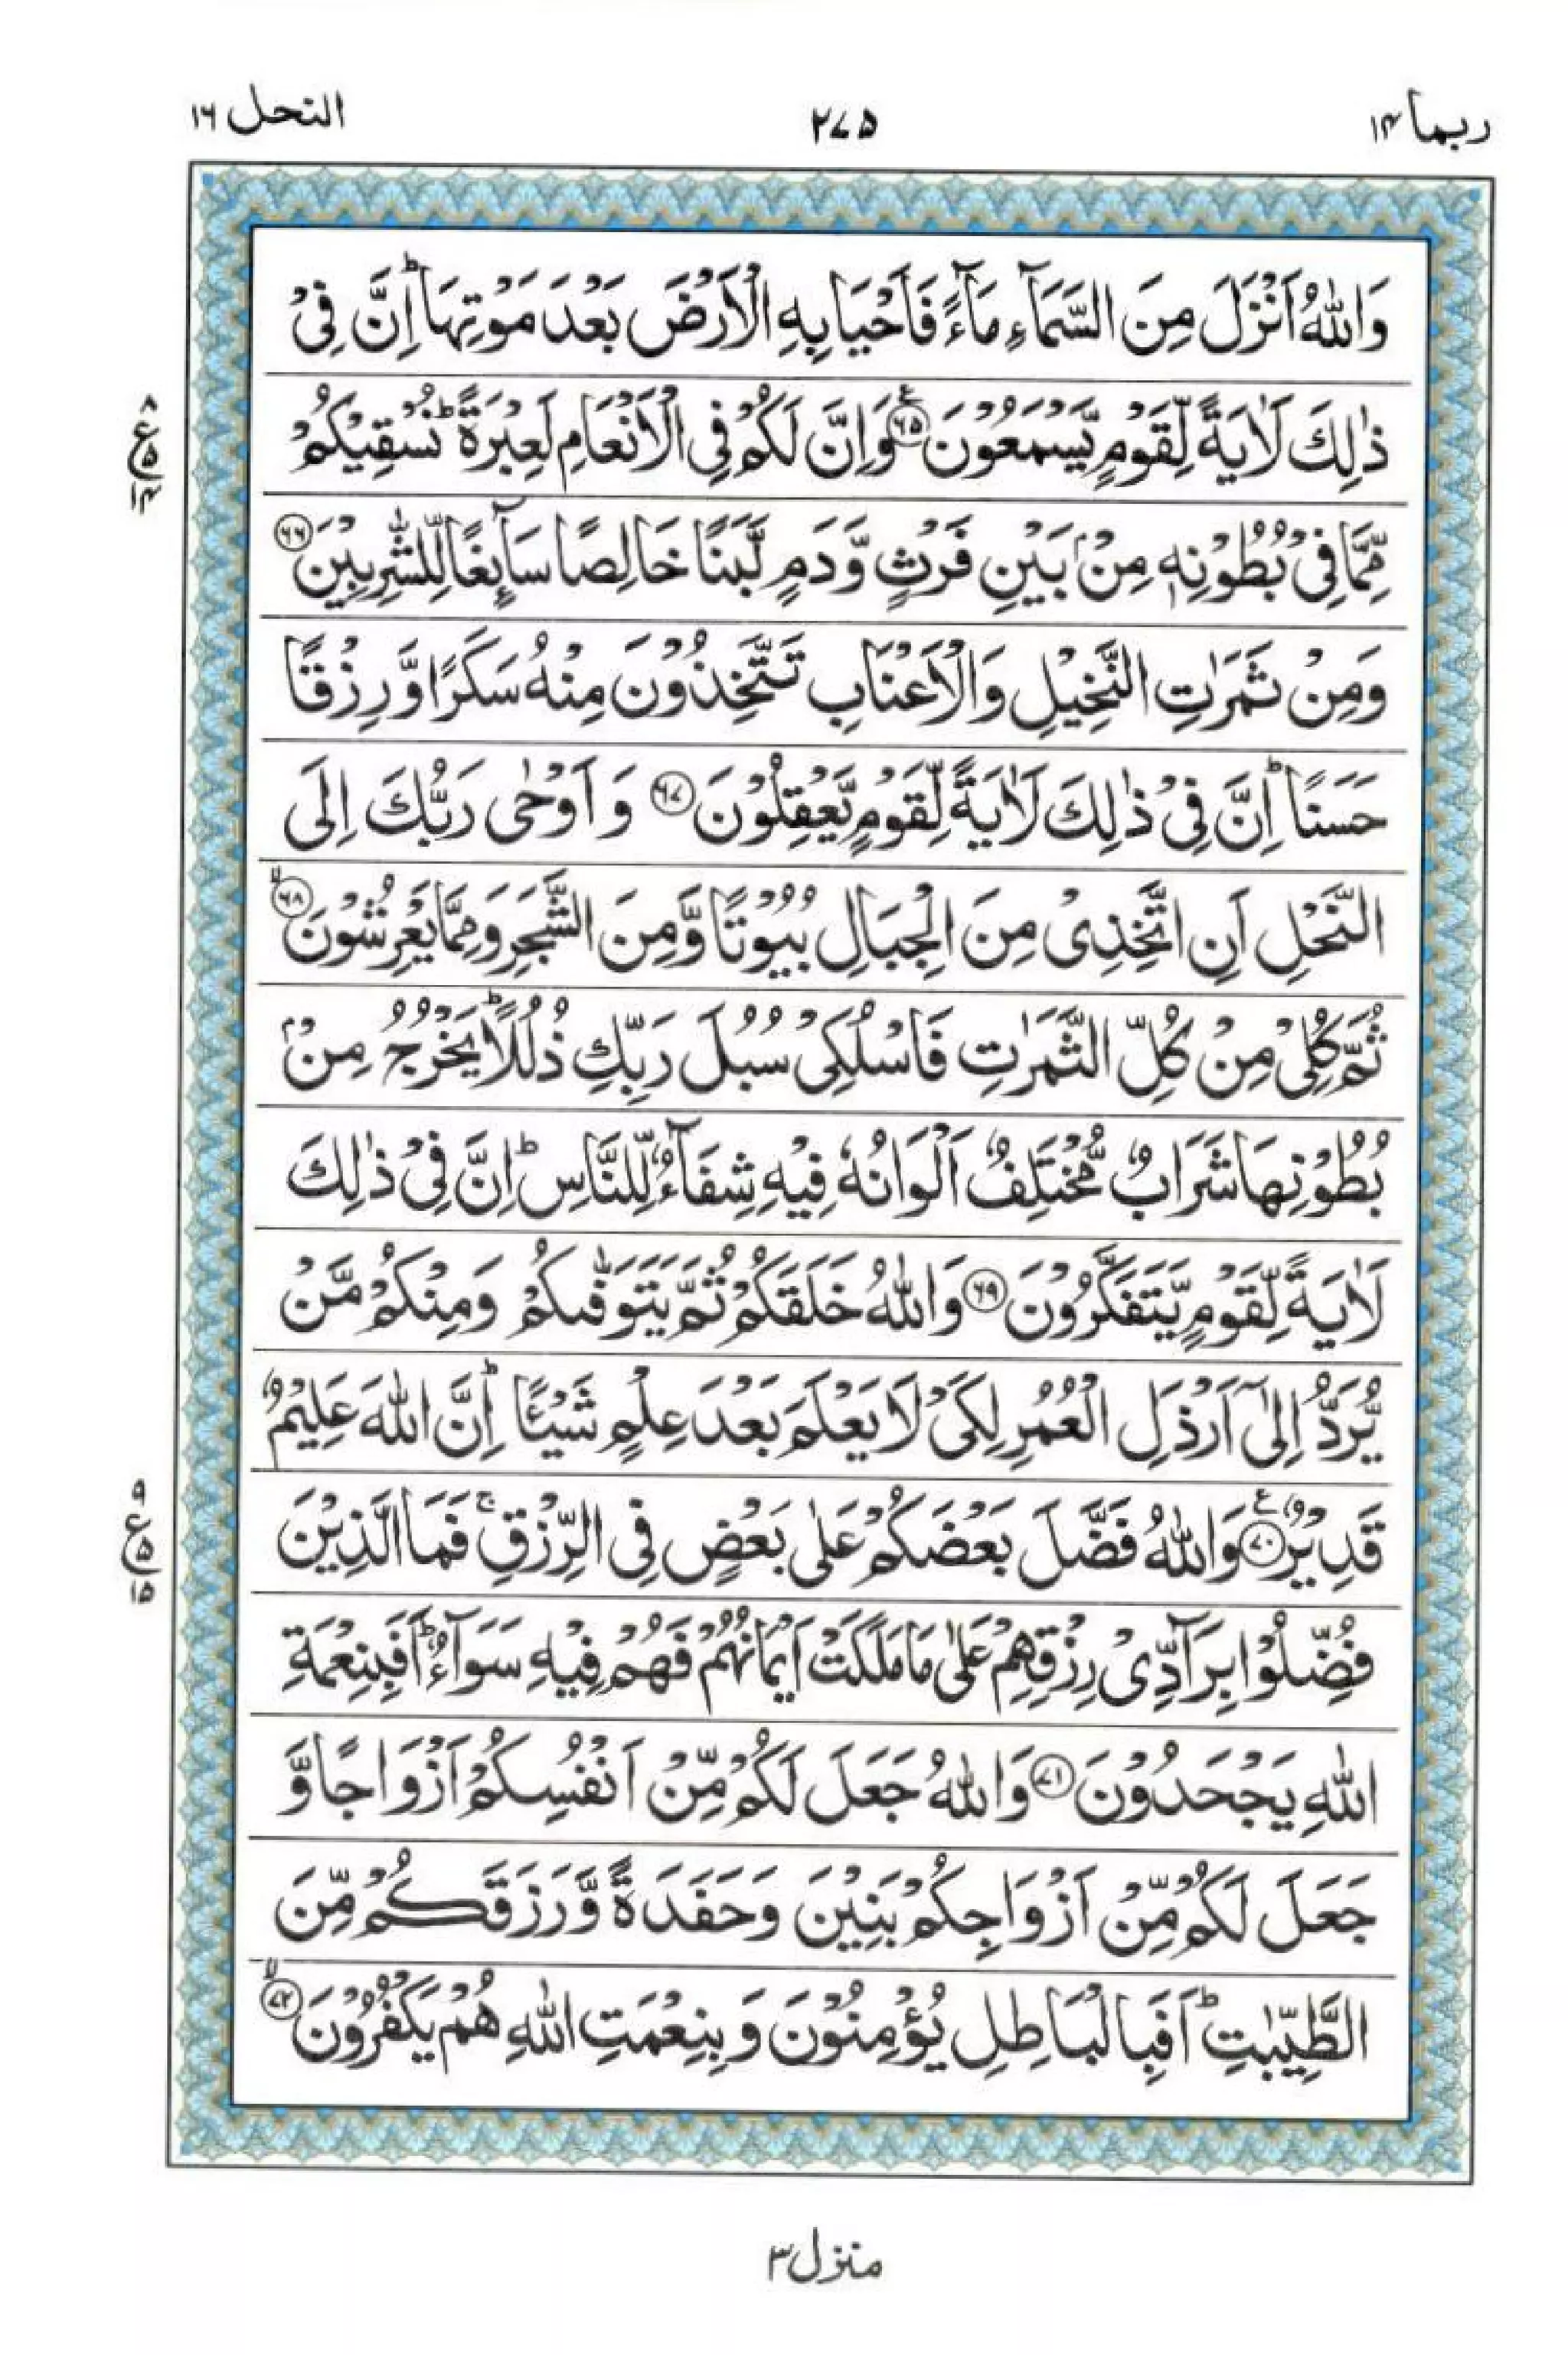 ربما ۱۴ ۲۷۵ النحل ۱۶
وَاللّٰهُ اَنْزَلَ مِنَ السَّمَآءِ مَآءً فَاَحْيَا بِهِ الْاَرْضَ بَعْدَ مَوْتِهَا ؕ اِنَّ فِیْ
ذٰلِكَ لَاٰيَةً لِّقَوْمٍ يَّسْمَعُوْنَ ۶۵ ع وَاِنَّ لَكُمْ فِی الْاَنْعَامِ لَعِبْرَةً ؕ نُسْقِيْكُمْ
۸ ع ۵ ۱۴
مِّمَّا فِیْ بُطُوْنِهٖ مِنْۢ بَيْنِ فَرْثٍ وَّدَمٍ لَّبَنًا خَالِصًا سَآئِغًا لِّلشّٰرِبِيْنَ ۶۶
وَمِنْ ثَمَرٰتِ النَّخِيْلِ وَالْاَعْنَابِ تَتَّخِذُوْنَ مِنْهُ سَكَرًا وَّرِزْقًا
حَسَنًا ؕ اِنَّ فِیْ ذٰلِكَ لَاٰيَةً لِّقَوْمٍ يَّعْقِلُوْنَ ۶۷ وَاَوْحٰی رَبُّكَ اِلَی
النَّحْلِ اَنِ اتَّخِذِیْ مِنَ الْجِبَالِ بُيُوْتًا وَّمِنَ الشَّجَرِ وَمِمَّا يَعْرِشُوْنَ ۶۸ ۙ
ثُمَّ كُلِیْ مِنْ كُلِّ الثَّمَرٰتِ فَاسْلُكِیْ سُبُلَ رَبِّكِ ذُلُلًا ؕ يَخْرُجُ مِنْۢ
بُطُوْنِهَا شَرَابٌ مُّخْتَلِفٌ اَلْوَانُهٗ فِيْهِ شِفَآءٌ لِّلنَّاسِ ؕ اِنَّ فِیْ ذٰلِكَ
لَاٰيَةً لِّقَوْمٍ يَّتَفَكَّرُوْنَ ۶۹ وَاللّٰهُ خَلَقَكُمْ ثُمَّ يَتَوَفّٰىكُمْ وَمِنْكُمْ مَّنْ
يُّرَدُّ اِلٰۤی اَرْذَلِ الْعُمُرِ لِكَیْ لَا يَعْلَمَ بَعْدَ عِلْمٍ شَيْـًٔا ؕ اِنَّ اللّٰهَ عَلِيْمٌ
قَدِيْرٌ ۷۰ ع وَاللّٰهُ فَضَّلَ بَعْضَكُمْ عَلٰی بَعْضٍ فِی الرِّزْقِ ۚ فَمَا الَّذِيْنَ
۹ ع ۵ ۱۵
فُضِّلُوْا بِرَآدِّیْ رِزْقِهِمْ عَلٰی مَا مَلَكَتْ اَيْمَانُهُمْ فَهُمْ فِيْهِ سَوَآءٌ ؕ اَفَبِنِعْمَةِ
اللّٰهِ يَجْحَدُوْنَ ۷۱ وَاللّٰهُ جَعَلَ لَكُمْ مِّنْ اَنْفُسِكُمْ اَزْوَاجًا وَّ
جَعَلَ لَكُمْ مِّنْ اَزْوَاجِكُمْ بَنِيْنَ وَحَفَدَةً وَّرَزَقَكُمْ مِّنَ
الطَّيِّبٰتِ ؕ اَفَبِالْبَاطِلِ يُؤْمِنُوْنَ وَبِنِعْمَتِ اللّٰهِ هُمْ يَكْفُرُوْنَ ۷۲ ۙ
منزل ۳